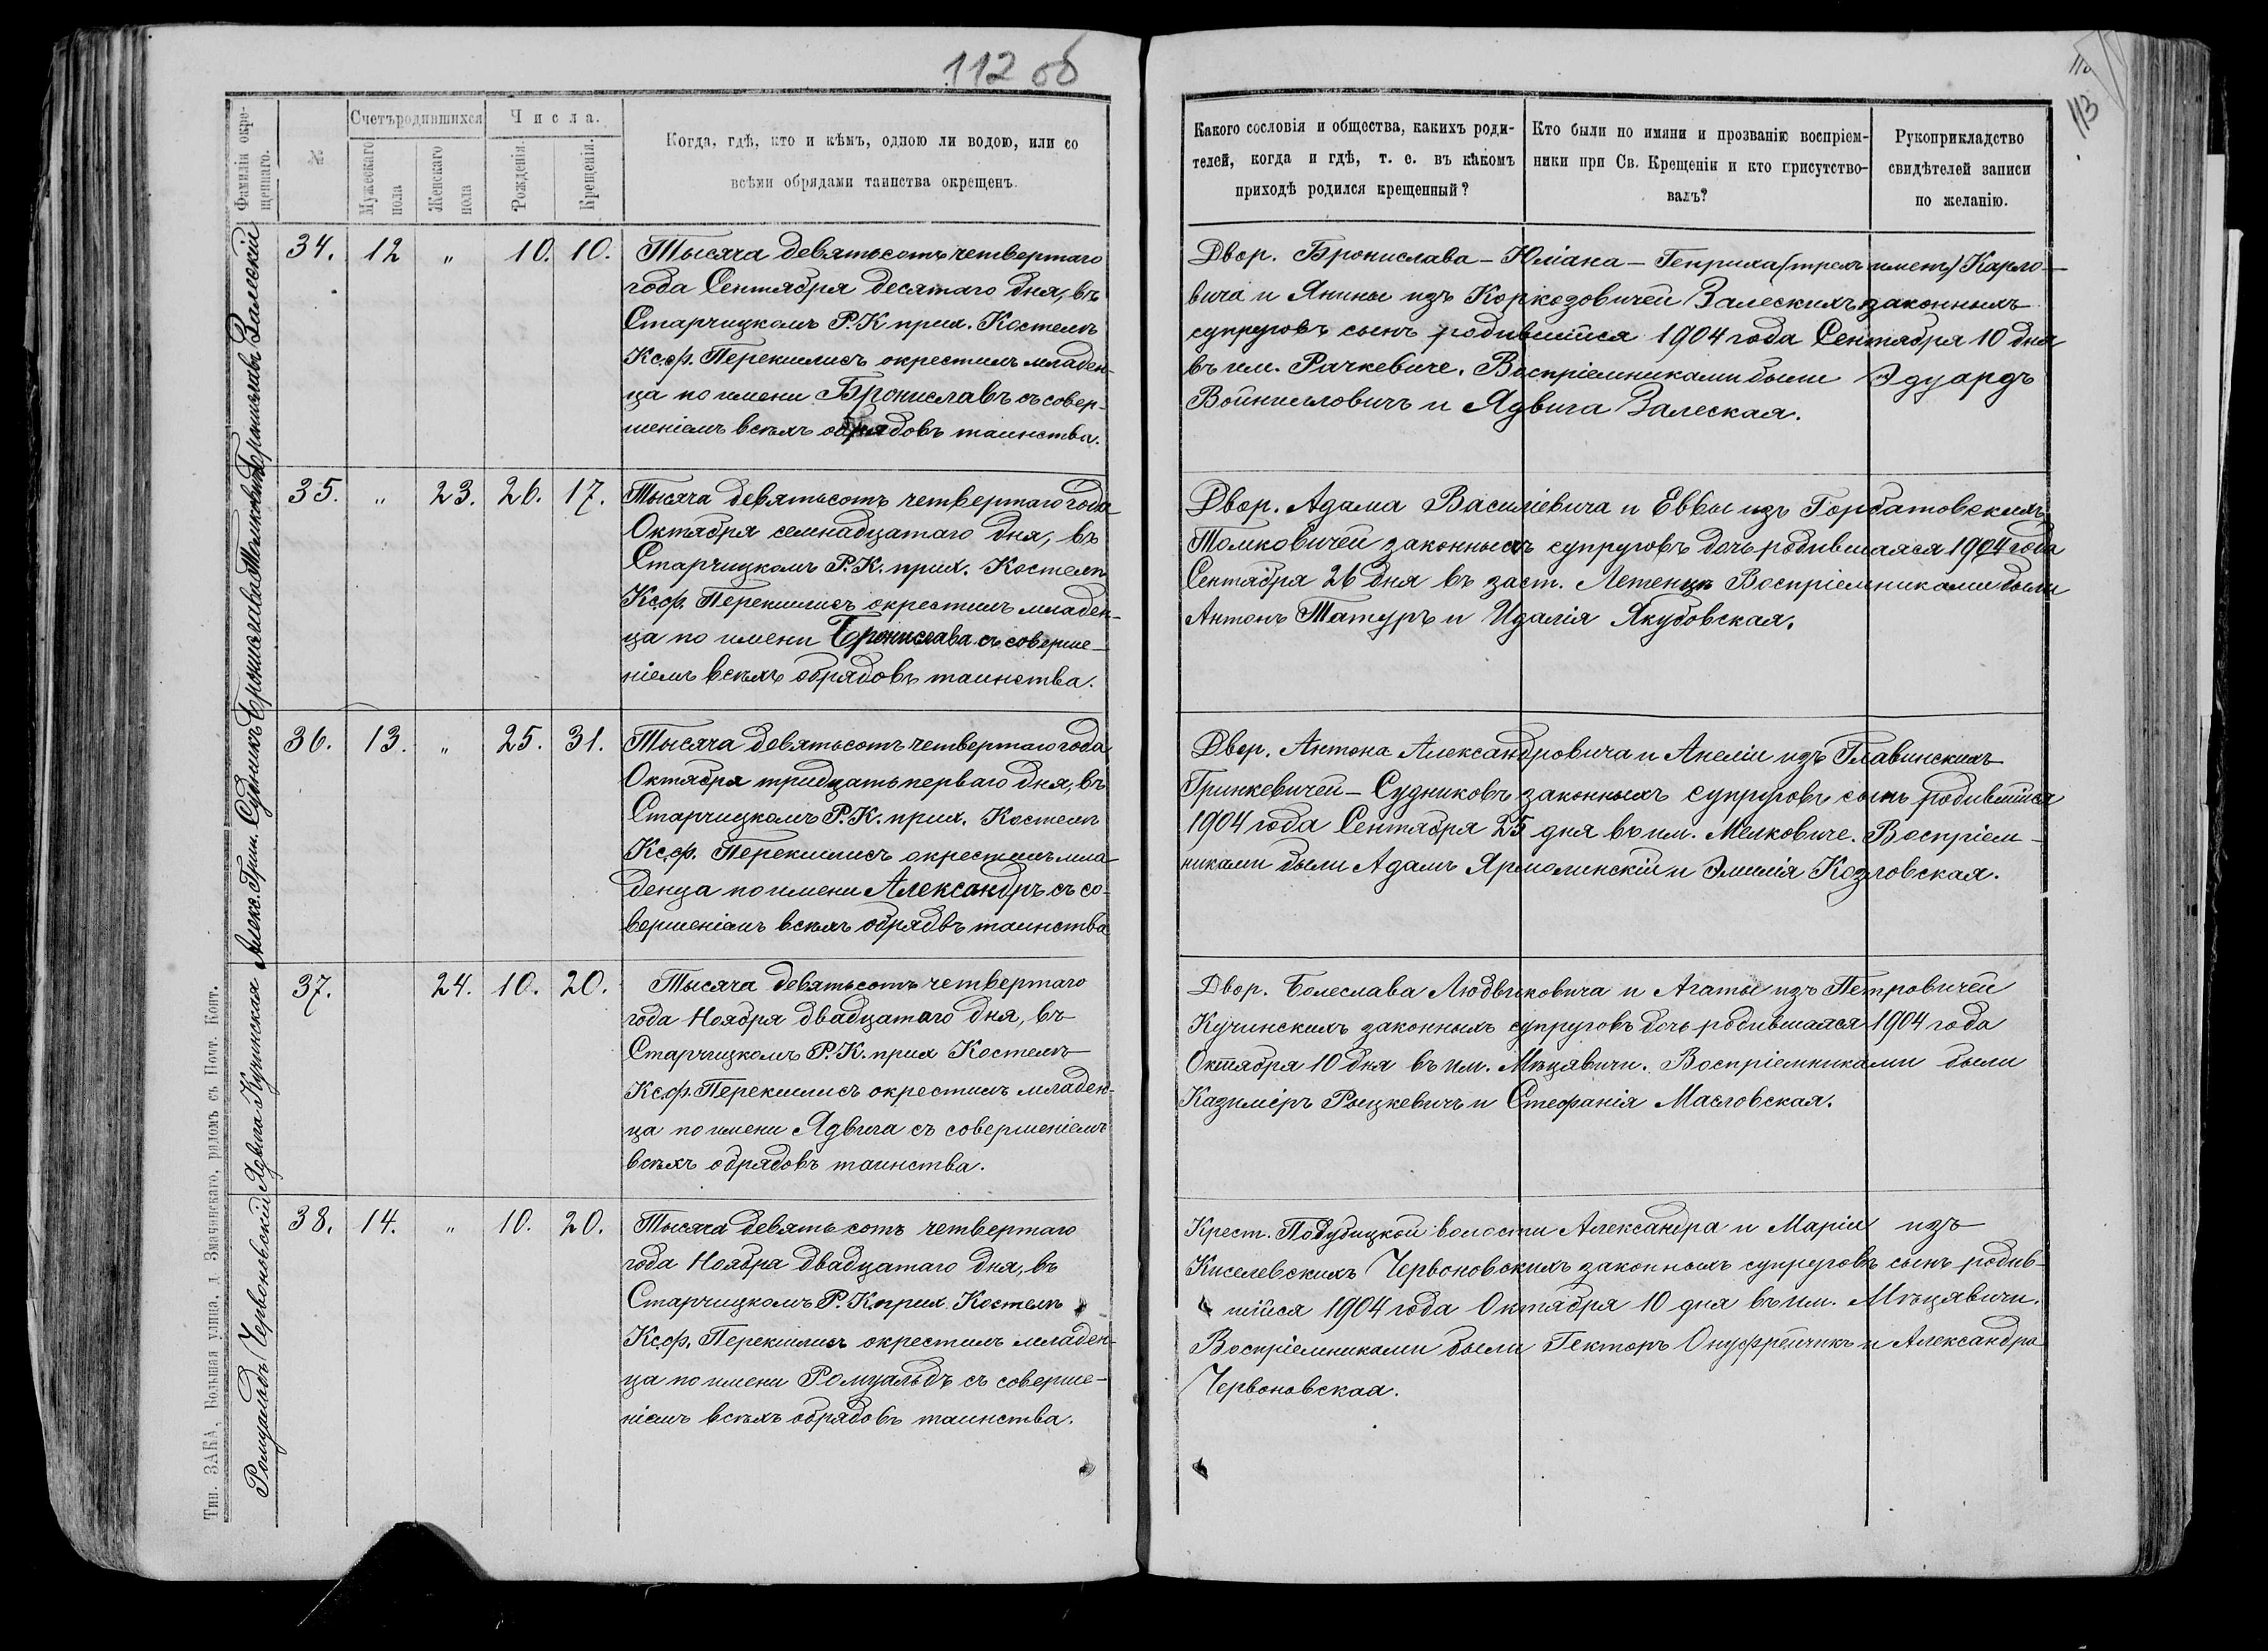 112 об
113
Фамилія окре-
щеннаго.
№
Счетъ родившихся
Мужескаго
пола
Женскаго
пола
Числа.
Рожденія.
Крещенія.
Когда, гдѣ, кто и кѣмъ, одною ли водою, или со
всѣми обрядами таинства окрещенъ.
Какого сословія и общества, какихъ роди-
телей, когда и гдѣ, т. е. въ какомъ
приходѣ родился крещенный?
Кто были по имяни и прозванію воспріем-
ники при Св. Крещеніи и кто присутство-
валъ?
Рукоприкладство
свидѣтелей записи
по желанію.
Брониславъ Залескій
34. 12 " 10. 10.
Тысяча девятьсотъ четвертаго
года Сентября десятаго дня, въ
Старчицкомъ Р.К прих. Костелѣ
Ксф. Перекшлисъ окрестилъ младен-
ца по имени Брониславъ съ совер-
шеніемъ всѣхъ обрядовъ таинства.
Двор. Бронислава-Юліана-Генриха (трехъ именъ) Карло-
вича и Янины изъ Коркозовичей Залескихъ законныхъ
супруговъ сынъ родившійся 1904 года Сентября 10 дня
въ им. Рачкевиче. Воспріемниками были Эдуардъ
Войнилловичъ и Ядвига Залеская.
Бронислава Томковичъ
35. " 23. 26. 17.
Тысяча девятьсотъ четвертаго года
Октября семнадцатаго дня, въ
Старчицкомъ Р.К. прих. Костелѣ
Ксф. Перекшлисъ окрестилъ младен-
ца по имени Бронислава съ соверше-
ніемъ всѣхъ обрядовъ таинства.
Двор. Адама Василіевича и Еввы изъ Горбатовскихъ
Томковичей законныхъ супруговъ дочь родившаяся 1904 года
Сентября 26 дня въ заст. Летенцѣ Воспріемниками были
Антонъ Татуръ и Идалія Якубовская.
Алекс. Грин. Судникъ
36. 13. " 25. 31.
Тысяча девятьсотъ четвертаго года
Октября тридцать перваго дня, въ
Старчицкомъ Р.К. прих. Костелѣ
Ксф. Перекшлисъ окрестилъ мла-
денца по имени Александръ съ со-
вершеніемъ всѣхъ обрядвъ таинства
Двор. Антона Александровича и Анеліи изъ Главинскихъ
Гринкевичей-Судниковъ законныхъ супруговъ сынъ родившійся
1904 года Сентября 25 дня въ им. Мелковиче. Воспріем-
никами были Адамъ Ярмолинскій и Эмилія Козловская.
Ядвига Кучинская
37. 24. 10. 20.
Тысяча девятьсотъ четвертаго
года Ноября двадцатаго дня, въ
Старчицкомъ Р.К. прих Костелѣ
Ксф. Перекшлисъ окрестилъ младен-
ца по имени Ядвига съ совершеніемъ
всѣхъ обрядовъ таинства.
Двор. Болеслава Людвиковича и Агаты изъ Петровичей
Кучинскихъ законныхъ супруговъ дочь родившаяся 1904 года
Октября 10 дня въ им. Мѣцявичи. Воспріемниками были
Казиміръ Рыцкевичъ и Стефанія Масловская.
Ромуальдъ Червоновскій
38. 14. " 10. 20.
Тысяча девять сотъ четвертаго
года Ноября двадцатаго дня, въ
Старчицкомъ Р.К. прих Костелѣ
Ксф. Перекшлисъ окрестилъ младен-
ца по имени Ромуальдъ съ соверше-
ніемъ всѣхъ обрядовъ таинства.
Крест. волости Александра и Маріи изъ
Киселевскихъ Червоновскихъ законныхъ супруговъ сынъ родив-
шійся 1904 года Октября 10 дня въ им. Мѣцявичи.
Воспріемниками были Гекторъ Онуфрейчикъ и Александра
Червоновская.
Тип. ЗАКА, Большая улица, д. Змачинскаго, рядомъ съ Почт. Конт.